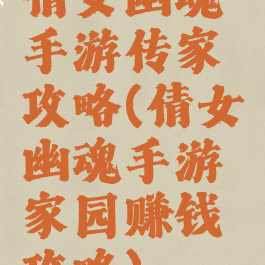 倩女幽魂
手游传家
攻略(倩女
幽魂手游
家园赚钱
攻略)